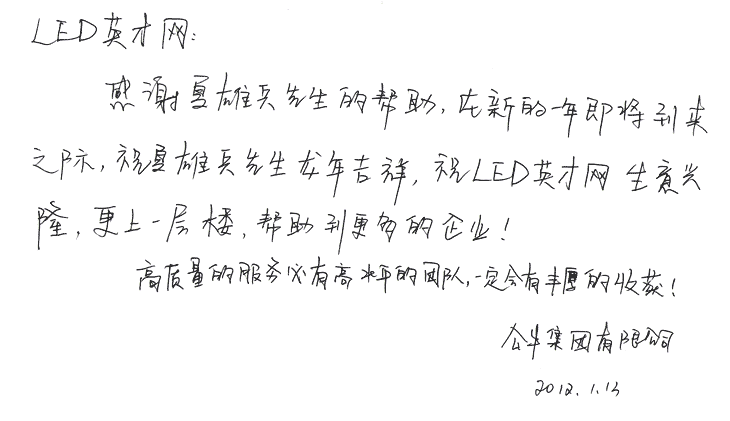 LED英才网:
感谢夏雄兵先生的帮助,在新的一年即将到来
之际,祝夏雄兵先生龙年吉祥,祝LED英才网生意兴
隆,更上一层楼,帮助到更多的企业!
高质量的服务必有高水平的团队,一定会有丰厚的收获!
公牛集团有限公司
2012.1.13